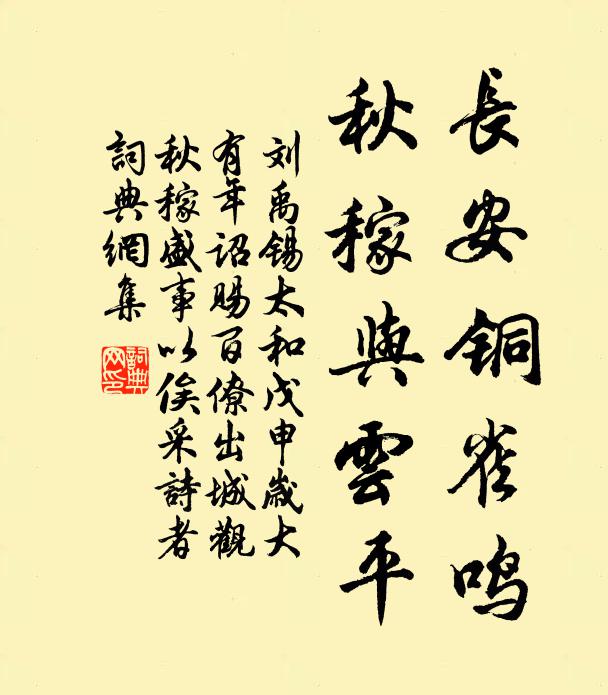 長安铜雀鸣
秋稼與雲平
刘禹锡太和戊申歲大
有年詔賜百僚出城觀
秋稼盛事以俟采詩者
詞典網集
詞典网印